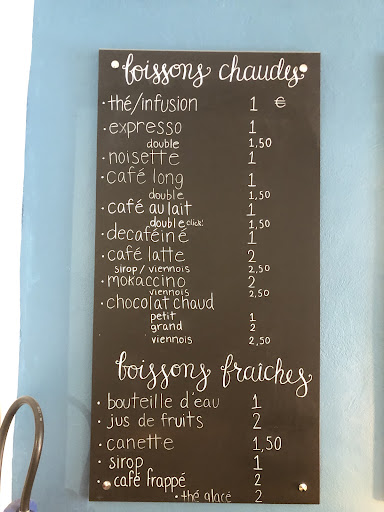 boissons chaudes
• thé/infusion 1 €
• expresso 1
double 1,50
• noisette 1
• café long 1
double 1,50
• café au lait 1
double click! 1,50
• decaféiné 1
• café latte 2
sirop/viennois 2,50
• mokaccino 2
viennois 2,50
• chocolat chaud
petit 1
grand 2
viennois 2,50
boissons fraîches
• bouteille d'eau 1
• jus de fruits 2
• canette 1,50
• sirop 1
• café frappé 2
• thé glacé 2